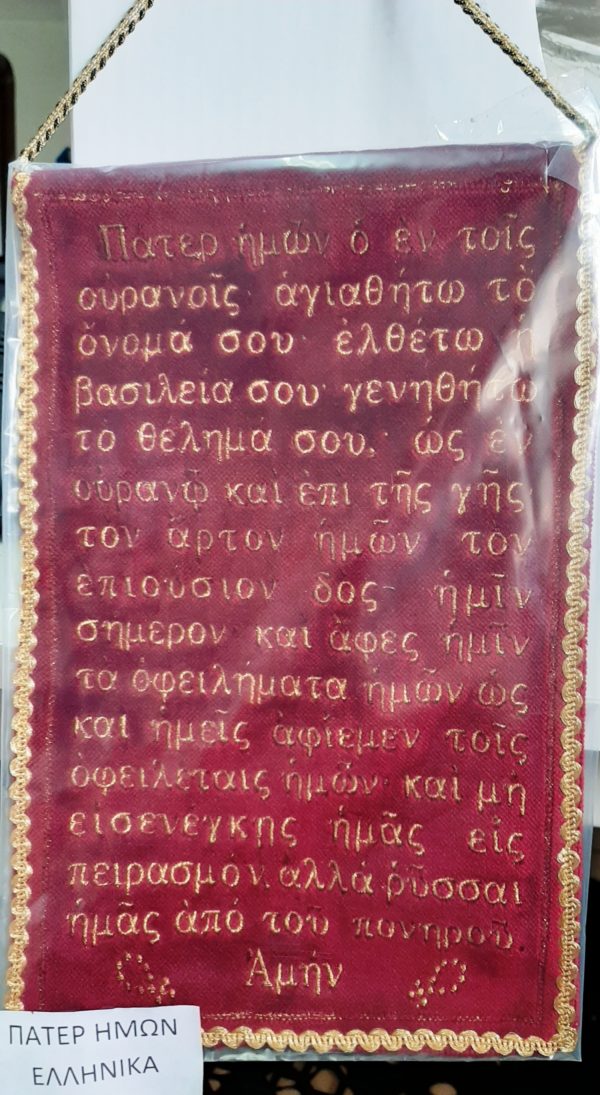 Πάτερ ἡμῶν ὁ ἐν τοῖς
οὐρανοῖς· ἁγιαθήτω τὸ
ὄνομά σου· ἐλθέτω ἡ
βασιλεία σου· γενηθήτω
το θέλημά σου, ὡς ἐν
οὐρανῷ καὶ ἐπὶ τῆς γῆς·
τον ἄρτον ἡμῶν τὸν
ἐπιούσιον δος ἡμῖν
σήμερον· καὶ ἄφες ἡμῖν
τὰ ὀφειλήματα ἡμῶν ὡς
καὶ ἡμεῖς ἀφίεμεν τοῖς
ὀφειλέταις ἡμῶν· καὶ μὴ
εἰσενέγκης ἡμᾶς εἰς
πειρασμόν, αλλά ῥῦσσαι
ἡμᾶς ἀπό τοῦ πονηροῦ.
Ἀμήν
ΠΑΤΕΡ ΗΜΩΝ
ΕΛΛΗΝΙΚΑ